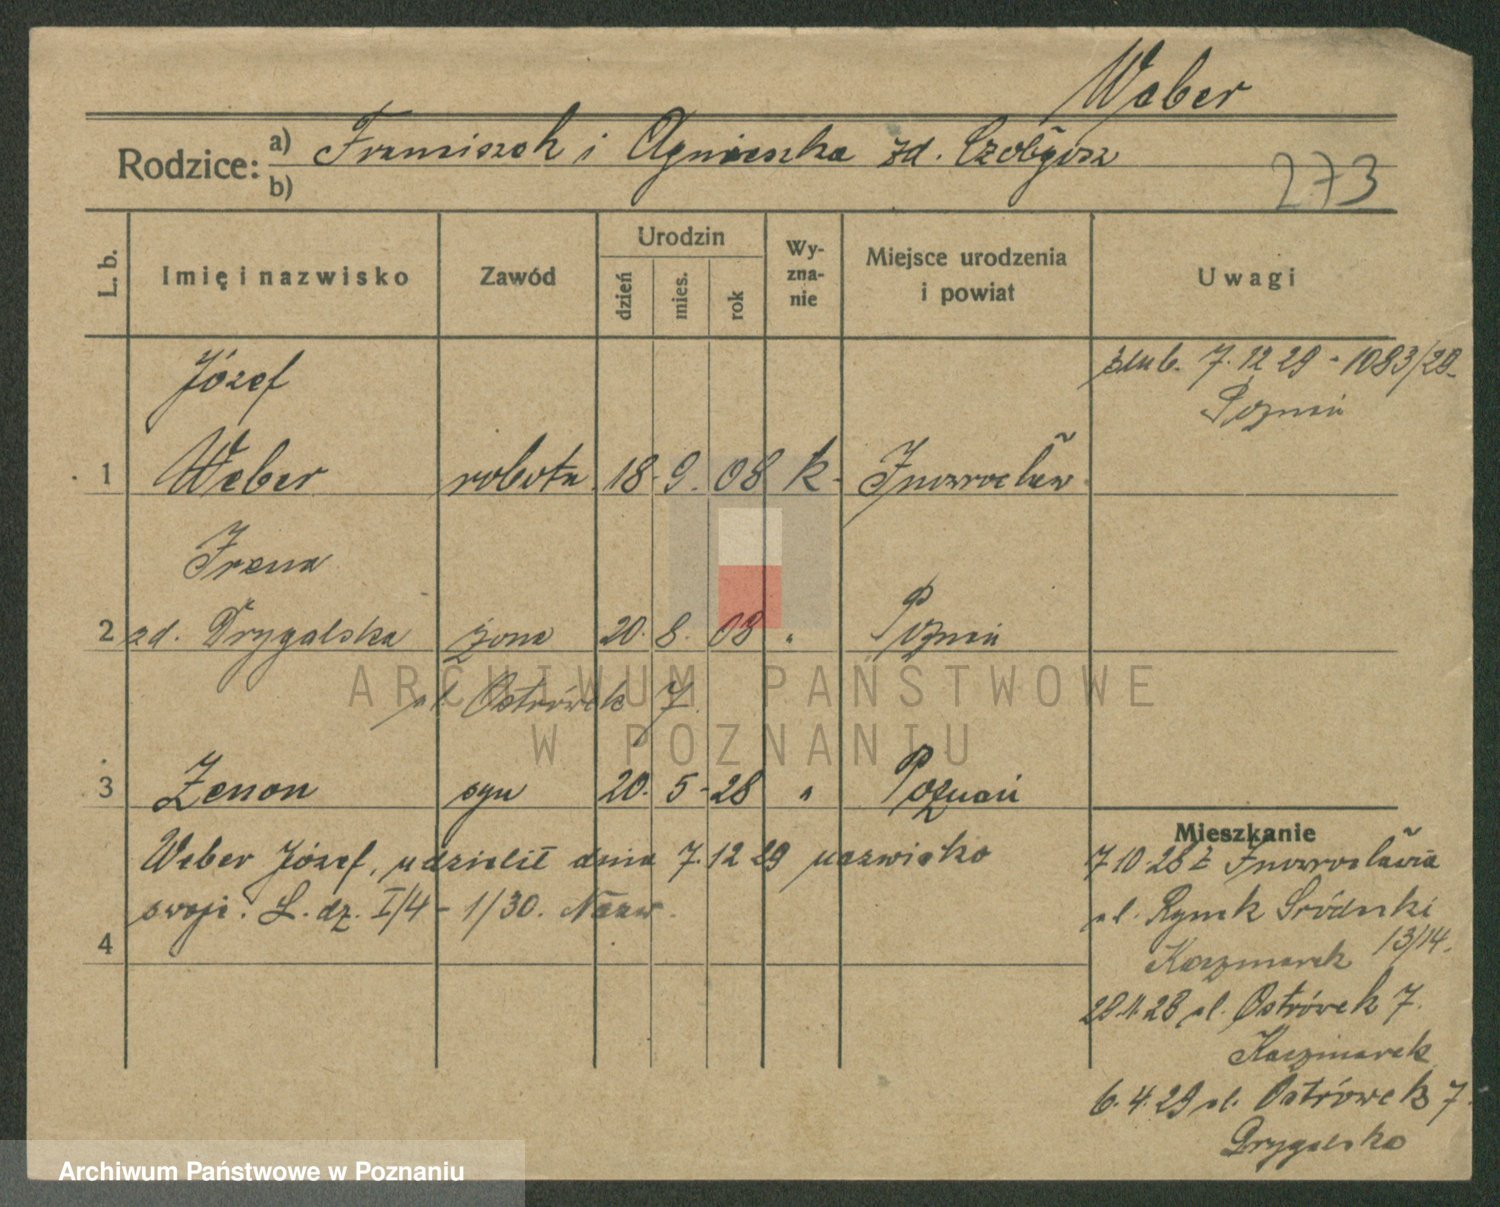 Weber
Rodzice: a) Franciszek i Agnieszka zd.
b)
273
L. b.
Imię i nazwisko
Zawód
Urodzin
dzień
mies.
rok
Wy-
zna-
nie
Miejsce urodzenia
i powiat
Uwagi
Józef
ślub. 7.12 29 - 1083/29
Poznań
1 Weber robotn. 18. 9. 08 k. Inowrocław
Irena
2 zd. Drygalska żona 20. 8. 08 " Poznań
ul. Ostrówek 7.
3 Zenon syn 20. 5 - 28 " Poznań
Weber Józef, udzielił dnia 7.12 29 nazwisko
swoje. L. dz. I/4 - 1/30. Nazw.
4
Mieszkanie
7 10. 28 z Inowrocławia
ul. Rynek Śródecki
13/14.
Kaczmarek
28.11.28 ul. Ostrówek 7.
Kaczmarek
6. 4. 29 ul. Ostrówek 7.
Drygalska
ARCHIWUM PAŃSTWOWE
W POZNANIU
Archiwum Państwowe w Poznaniu